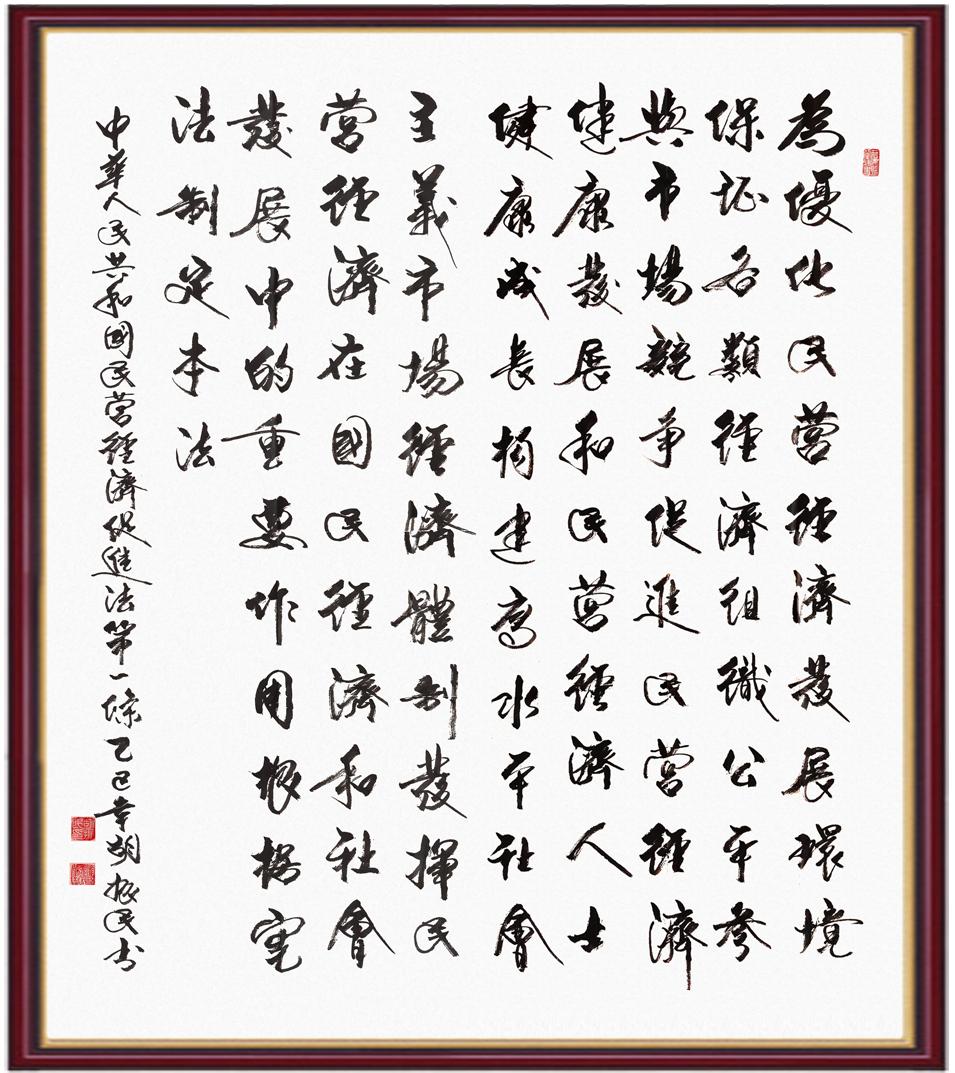 為優化民營經濟發展環境
保證各類經濟組織公平參
與市場競爭促進民營經濟
健康發展和民營經濟人士
健康成長構建高水平社會
主義市場經濟體制發揮民
營經濟在國民經濟和社會
發展中的重要作用根據憲
法制定本法
中華人民共和國民營經濟促進法第一條乙巳年胡振民书